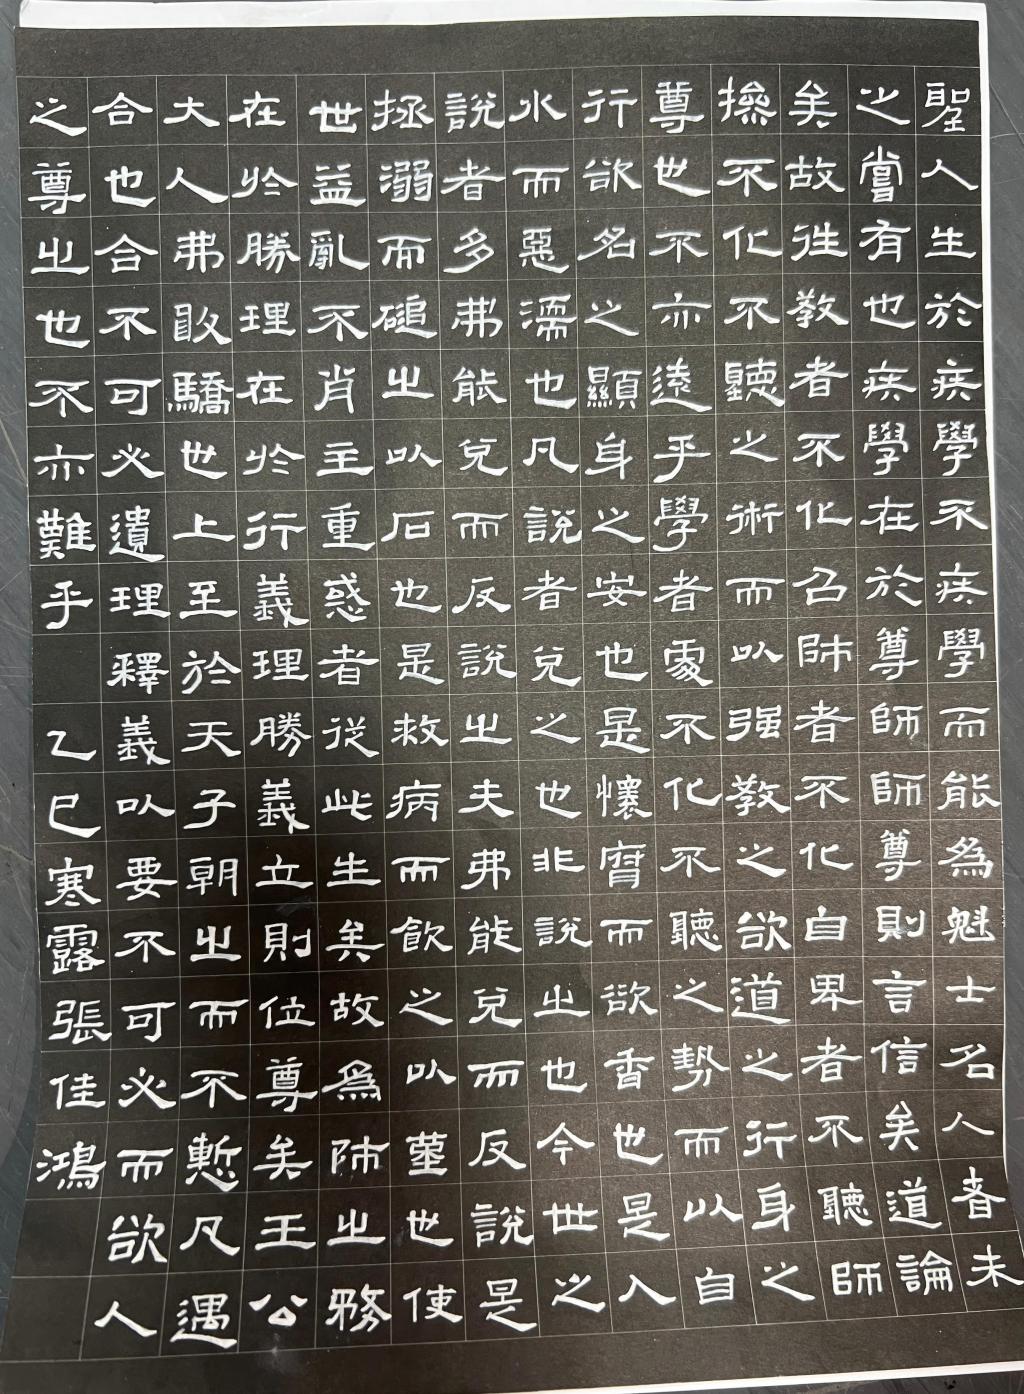 聖人生於疾學不疾學而能為魁士名人者未
之嘗有也疾學在於尊師師尊則言信矣道論
矣故往教者不化召師者不化自卑者不聽師
操不化不聽之術而以强教之欲道之行身之
尊也不亦遠乎學者處不化不聽之勢而以自
行欲名之顯身之安也是懷腐而欲香也是入
水而惡濡也凡說者兌之也非說之也今世之
說者多弗能兌而反說之夫弗能兌而反說是
拯溺而硾之以石也是救病而飲之以堇也使
世益亂不肖主重惑者從此生矣故為師之務
在於勝理在於行義理勝義立則位尊矣王公
大人弗敢驕也上至於天子朝之而不慙凡遇
合也合不可必遺理釋義以要不可必而欲人
之尊之也不亦難乎 乙巳寒露張佳鴻